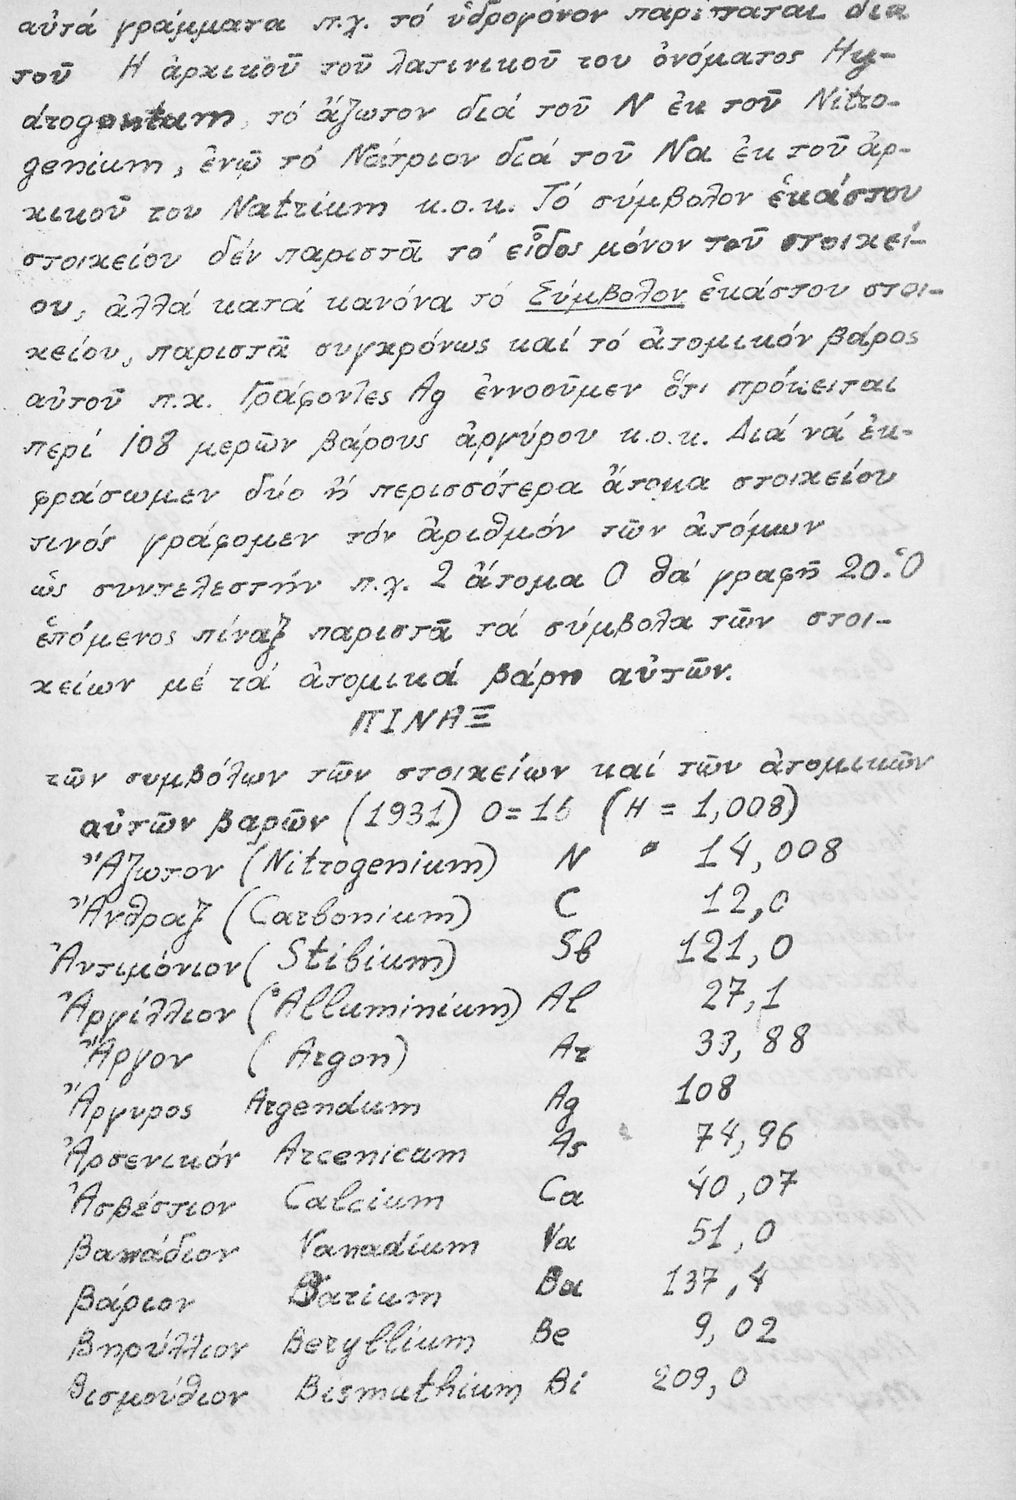 αὐτά γράμματα π.χ. τό ὑδρογόνον παρίσταται διά
τοῦ Η ἀρχικοῦ τοῦ λατινικοῦ του ὀνόματος Hy-
drogentum, τό ἄζωτον διά τοῦ N ἐκ τοῦ Nitro-
genium, ἐνῷ τό Νάτριον διά τοῦ Na ἐκ τοῦ ἀρ-
χικοῦ του Natrium κ.ο.κ. Τό σύμβολον ἑκάστου
στοιχείου δέν παριστᾶ τό εἶδος μόνον τοῦ στοιχεί-
ου, ἀλλά κατά κανόνα τό Σύμβολον ἑκάστου στοι-
χείου, παριστᾶ συγχρόνως καί τό ἀτομικόν βάρος
αὐτοῦ π.χ. Γράφοντες Ag ἐννοοῦμεν ὅτι πρόκειται
περί 108 μερῶν βάρους ἀργύρου κ.ο.κ. Διά νά ἐκ-
φράσωμεν δύο ἤ περισσότερα ἄτομα στοιχείου
τινός γράφομεν τόν ἀριθμόν τῶν ἀτόμων
ὡς συντελεστήν π.χ. 2 ἄτομα O θά γραφῆ 2O. Ὁ
ἑπόμενος πίναξ παριστᾶ τά σύμβολα τῶν στοι-
χείων μέ τά ἀτομικά βάρη αὐτῶν.
ΠΙΝΑΞ
τῶν συμβόλων τῶν στοιχείων καί τῶν ἀτομικῶν
αὐτῶν βαρῶν (1931) O=16 (H = 1,008)
Ἄζωτον (Nitrogenium) N " 14,008
Ἄνθραξ (Carbonium) C 12,0
Ἀντιμόνιον (Stibium) Sb 121,0
Ἀργίλλιον (Alluminium) Al 27,1
Ἄργον (Argon) Ar 33,88
Ἄργυρος Argendum Ag 108
Ἀρσενικόν Arcenicam As 74,96
Ἀσβέστιον Calcium Ca 40,07
Βανάδιον Vanadium Va 51,0
Βάριον Barium Ba 137,4
Βηρύλλιον Beryllium Be 9,02
Βισμούθιον Bismuthium Bi 209,0